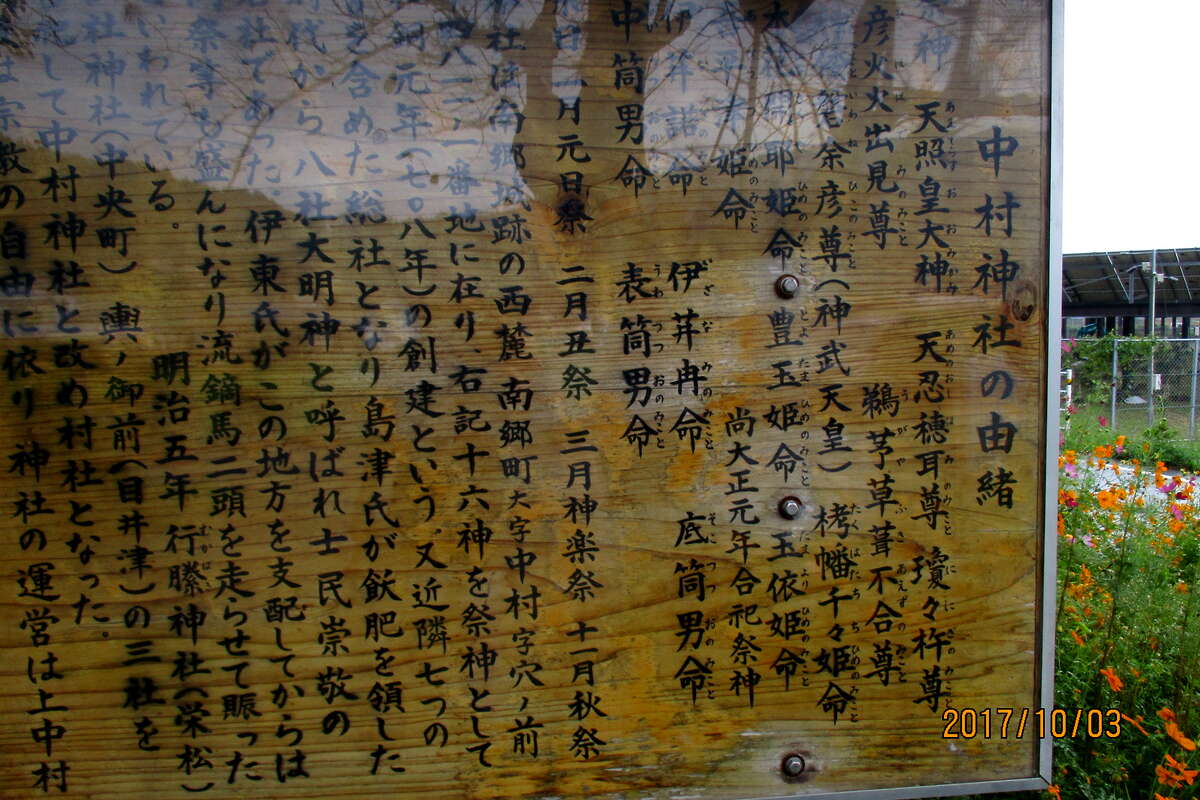 中村神社の由緒
神 天照皇大神 天忍穂耳尊 瓊々杵尊
彦火火出見尊 鵜芋草葺不合尊
余彦尊(神武天皇) 栲幡千々姫命
耶姫命 豊玉姫命 玉依姫命
姫命 尚大正元年合祀祭神
伊弉諾命 伊弉冉命
中筒男命 表筒男命 底筒男命
日 一月元日祭 二月丑祭 三月神楽祭 十一月秋祭
社は南郷城跡の西麓 南郷町大字中村字穴ノ前
八二ノ一番地に在り、右記十六神を祭神として
元年(七〇八年)の創建という、又近隣七つの
を含めた総社となり島津氏が飫肥を領した
時代から八社大明神と呼ばれ士民崇敬の
社であった、伊東氏がこの地方を支配してからは
祭等も盛んになり流鏑馬二頭を走らせて賑った
いわれている。 明治五年 行縢神社(栄松)
社神社(中央町) 輿ノ御前(目井津)の三社を
して中村神社と改め村社となった。
は宗教の自由に依り神社の運営は上中村
2017/10/03